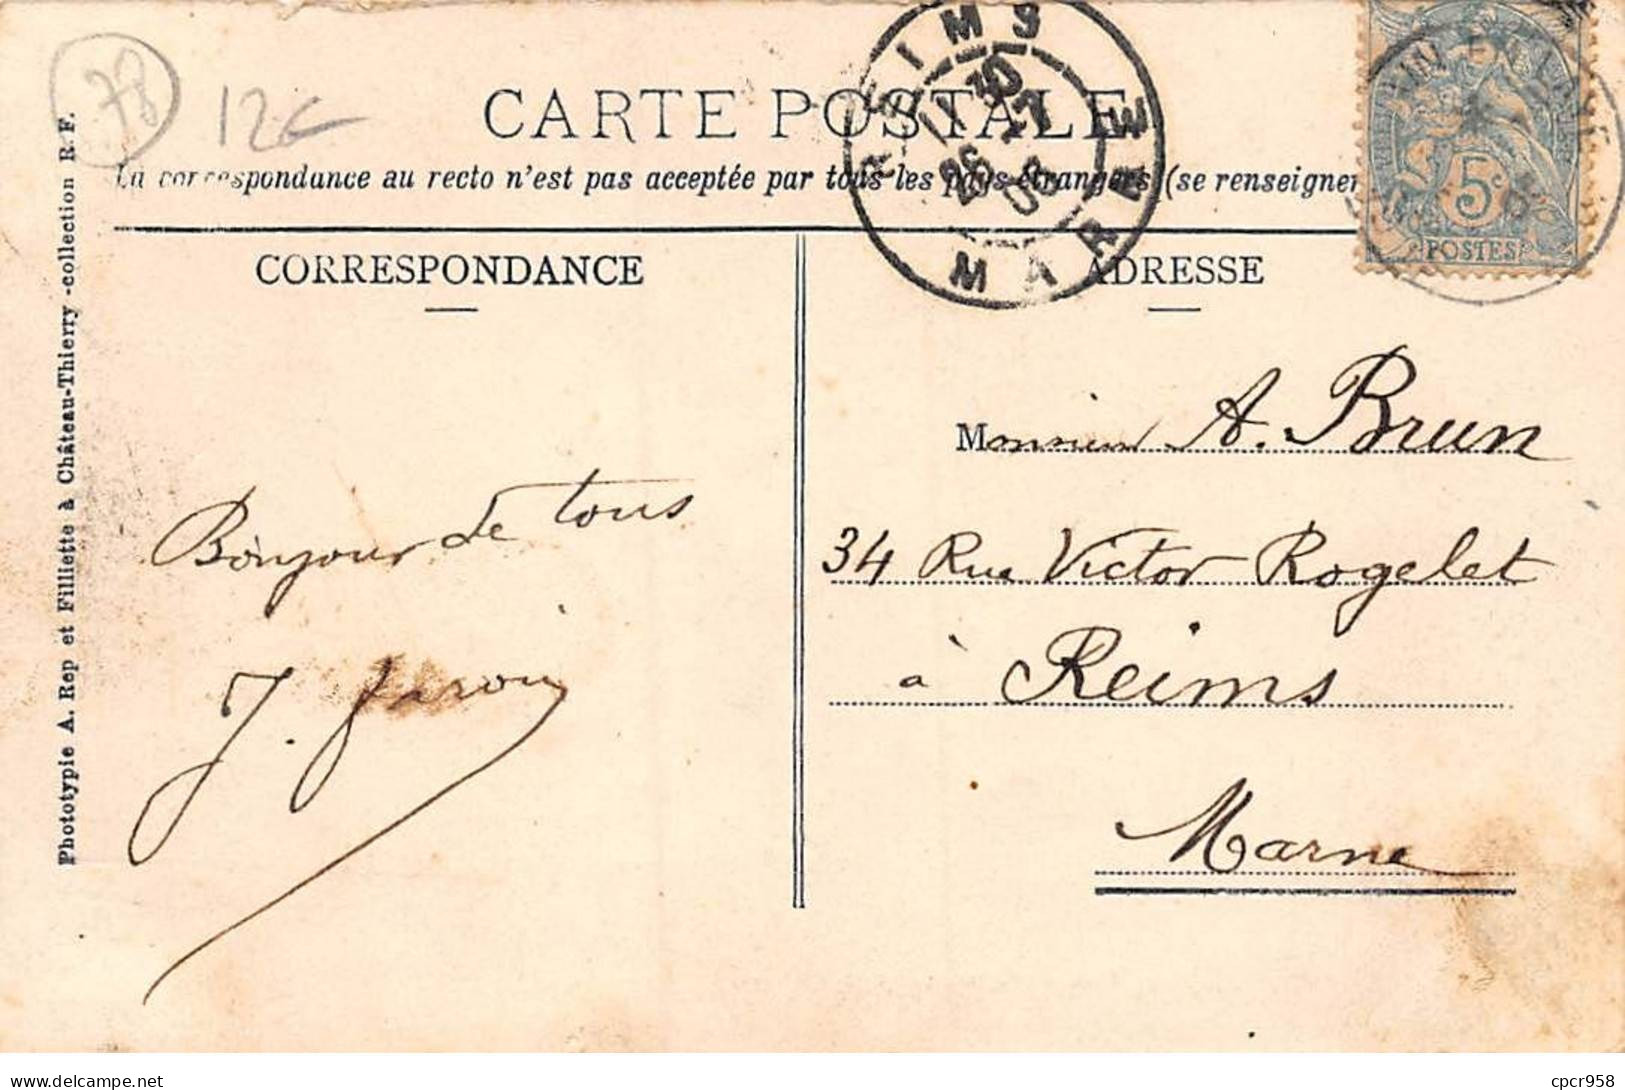 78
12€
CARTE POSTALE
La correspondance au recto n'est pas acceptée par tous les pays étrangers (se renseigner
REIMS
MARNE
5c
POSTES
CORRESPONDANCE
ADRESSE
Bonjour de tous
Monsieur A. Brun
34 Rue Victor Rogelet
à Reims
Marne
Phototypie A. Rep et Filliette à Château-Thierry -collection R. F.
delcampe.net
cpcr958